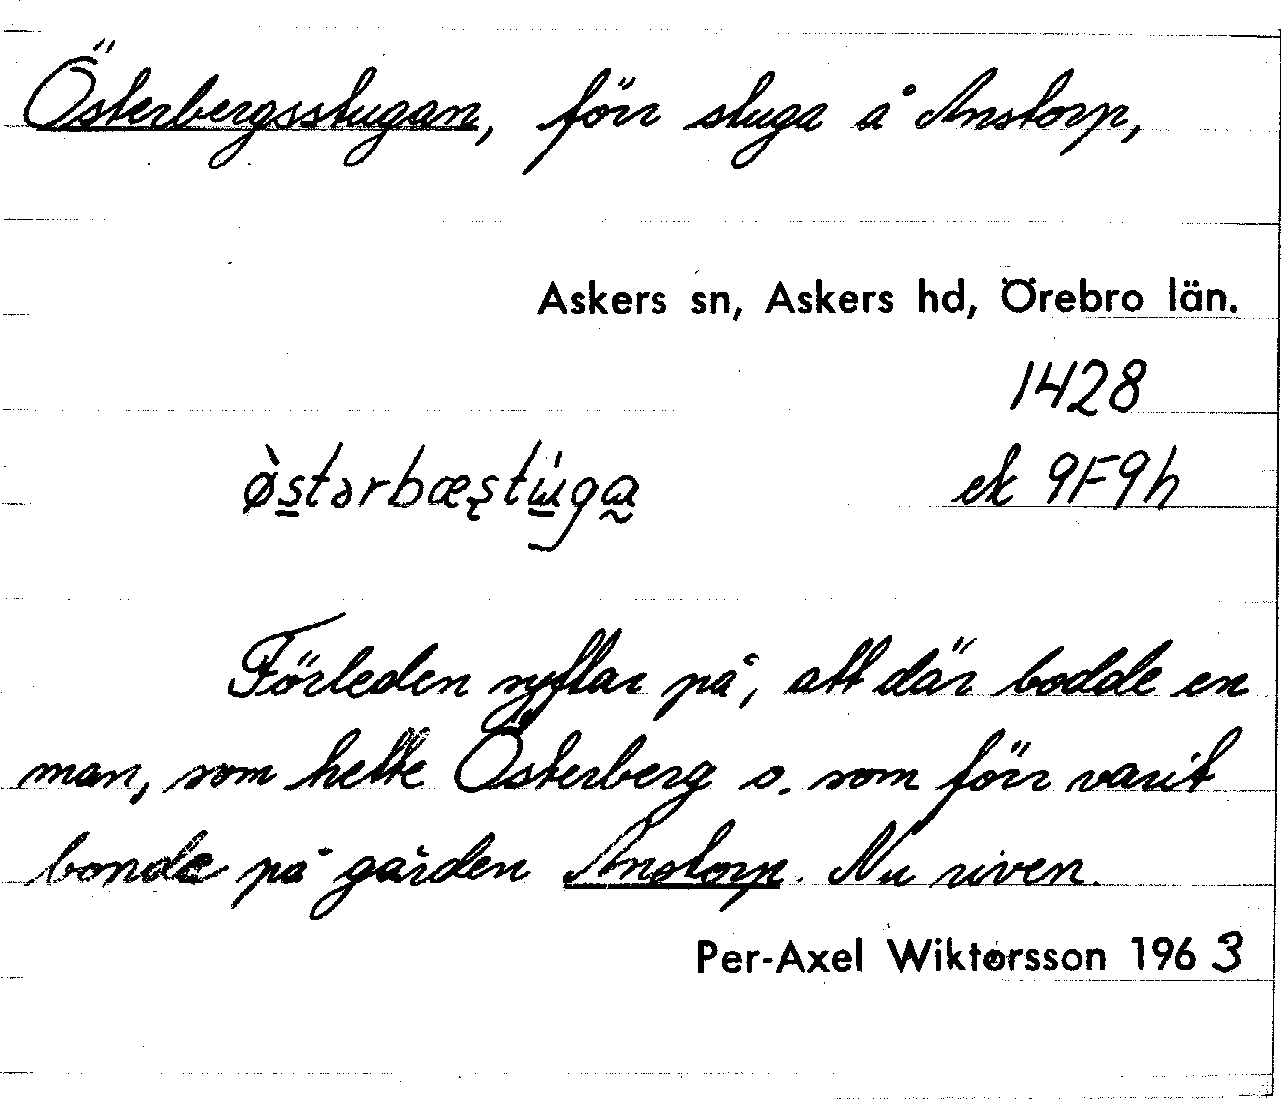 Österbergsstugan, förr stuga å Anstorp,
Askers sn, Askers hd, Örebro län.
1428
ø̀stərbæʂtùga
ek 9F9h
Förleden syftar på, att där bodde en
man, som hette Österberg o. som förr varit
bonde på gården Anstorp. Nu riven.
Per-Axel Wiktorsson 1963